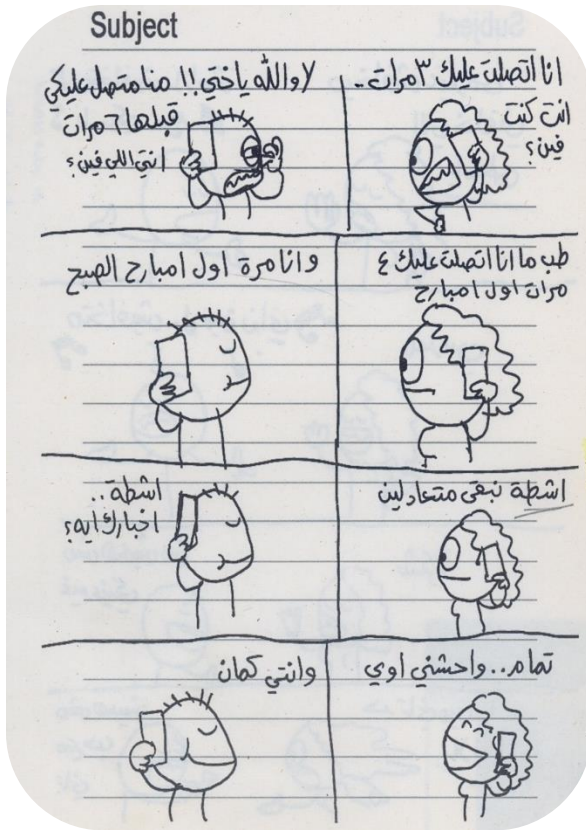 Subject
انا اتصلت عليك ٣ مرات..
انت كنت
فين؟
لا والله ياختي!! منا متصل عليكي
قبلها ٦ مرات
انتي اللي فين؟
طب ما انا اتصلت عليك ٤
مرات اول امبارح
وانا مرة اول امبارح الصبح
اشطة نبقى متعادلين
اشطة..
اخبارك ايه؟
تمام.. واحشني اوي
وانتي كمان